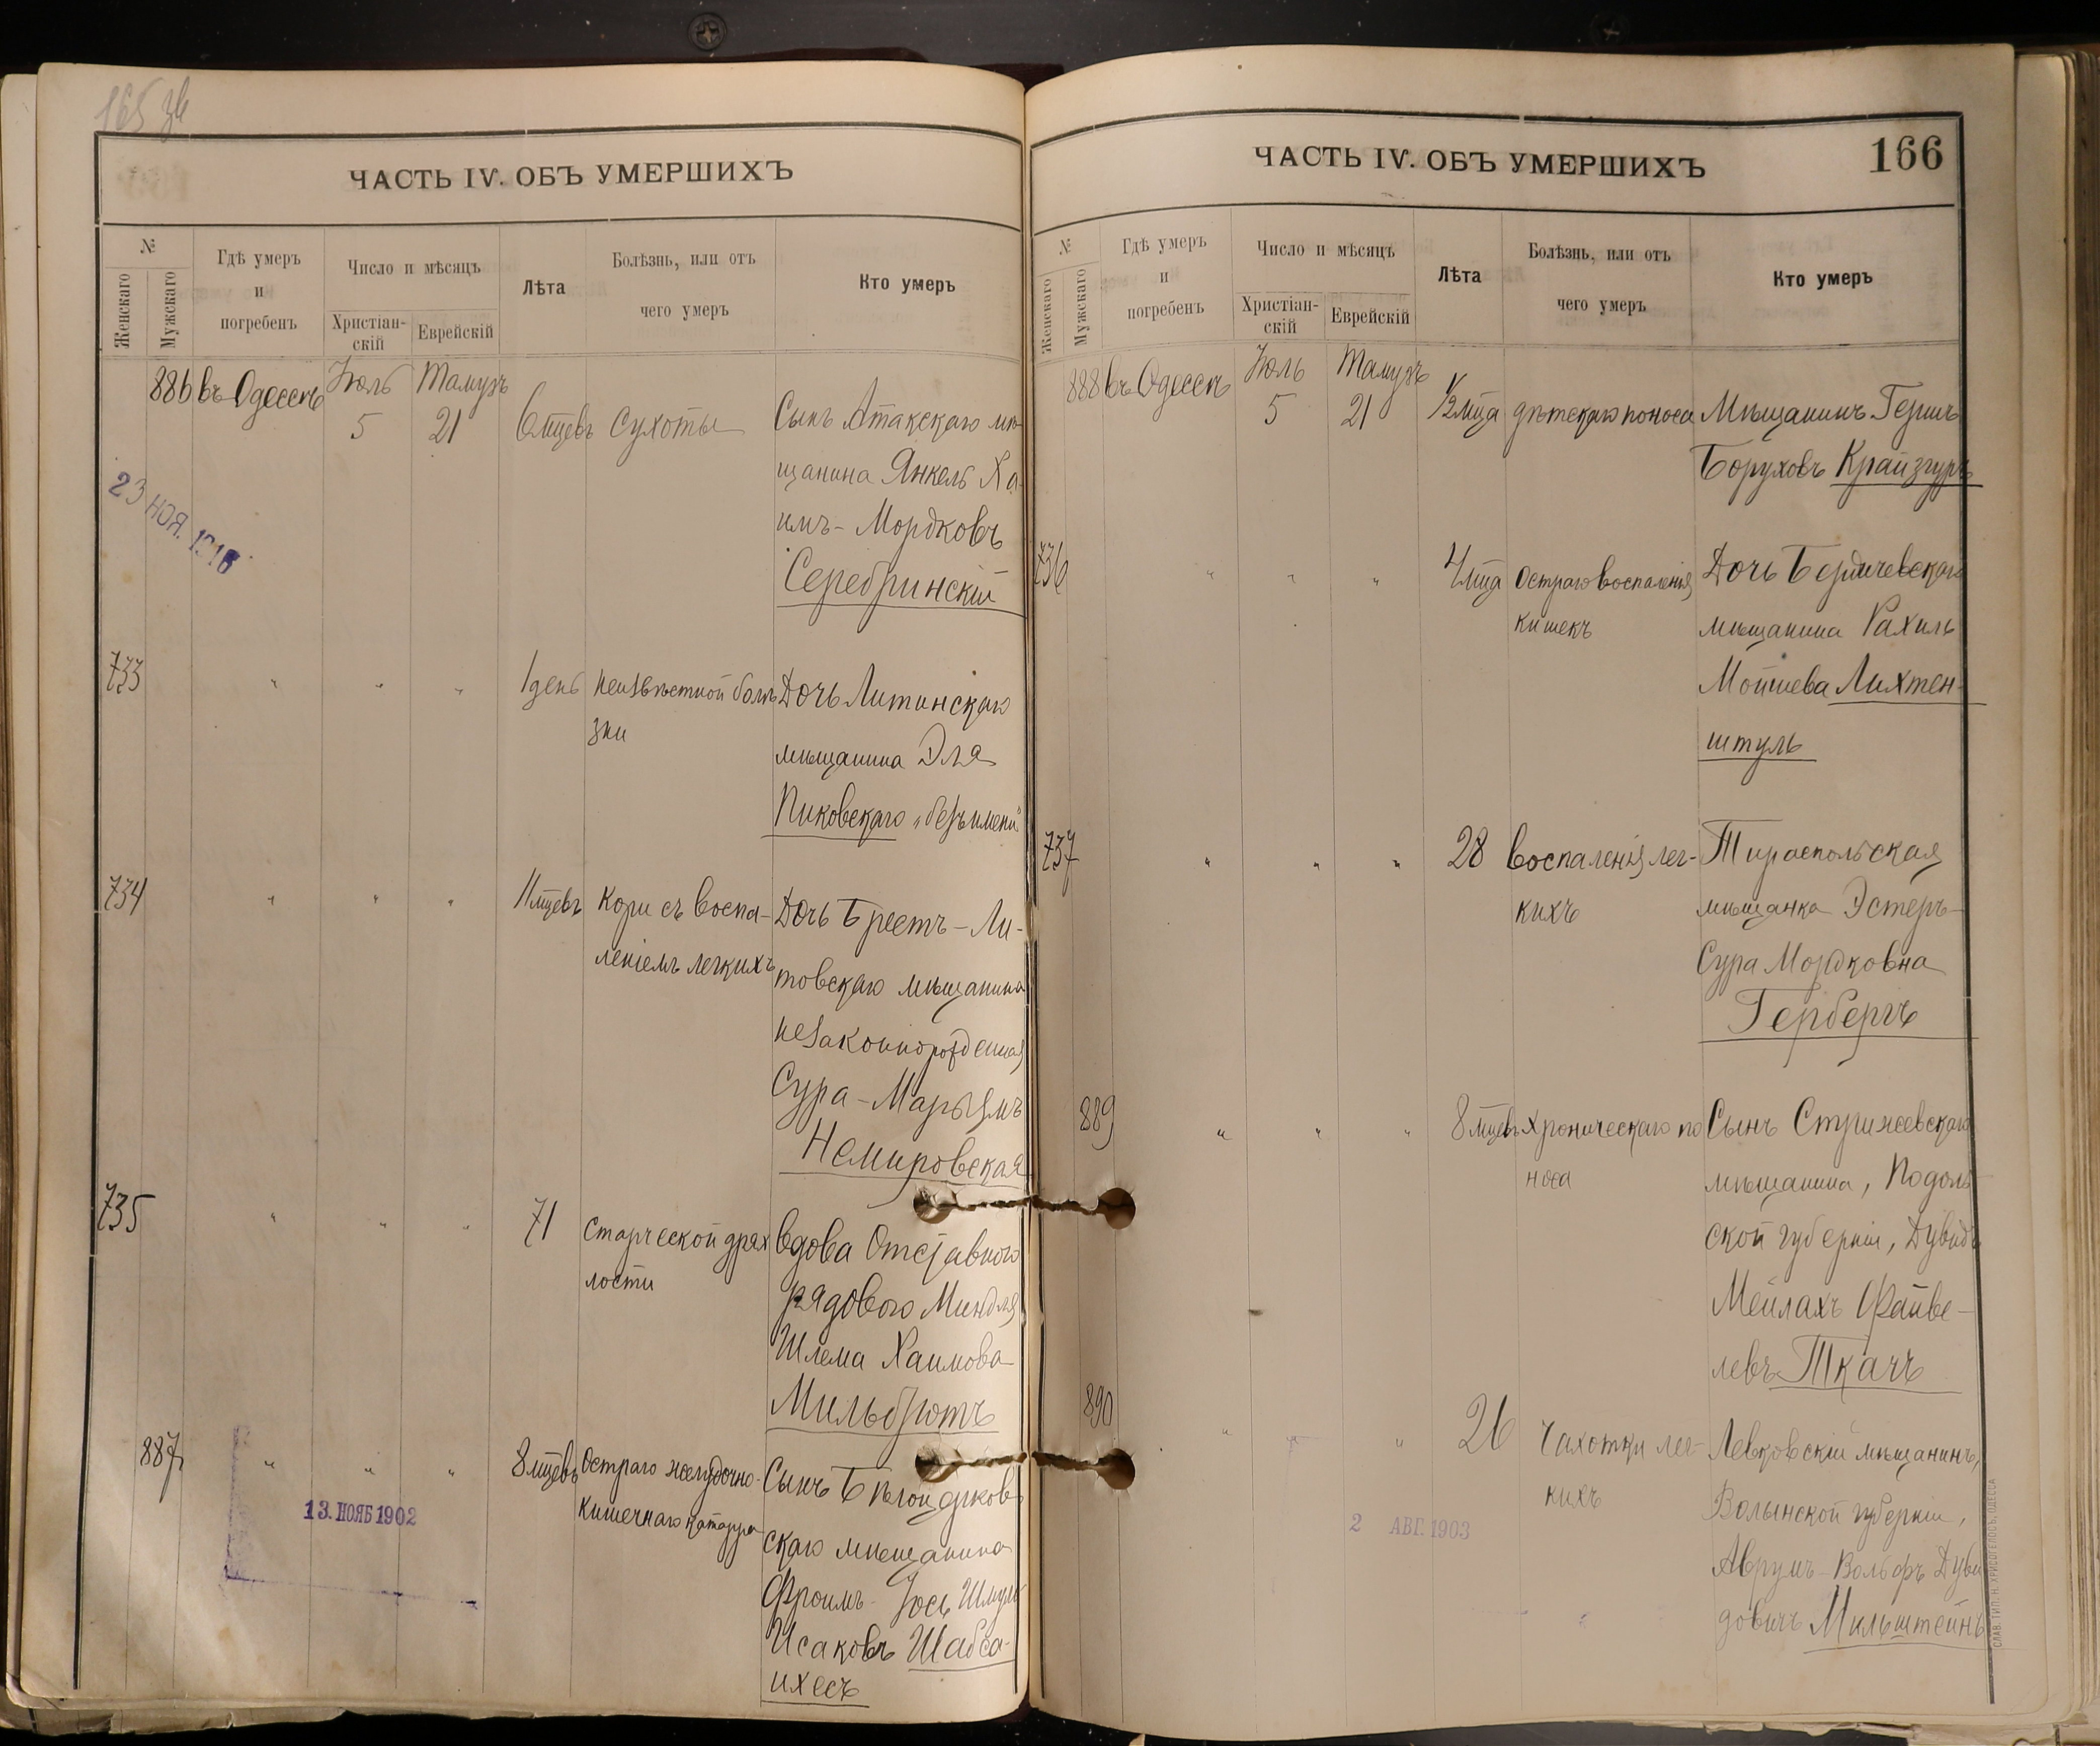 165 зв
ЧАСТЬ IV. ОБЪ УМЕРШИХЪ
№
Женскаго
Мужскаго
Гдѣ умеръ
и
погребенъ
Число и мѣсяцъ
Христіан-
скій
Еврейскій
Лѣта
Болѣзнь, или отъ
чего умеръ
Кто умеръ
886 въ Одессѣ Іюль Тамузъ
5 21 6 мцевъ Сухоты Сынъ Атакскаго мѣ-
щанина Янкель Ха-
имъ-Мордковъ
Серебринскій
23 НОЯ. 1916
733 " " " 1 день неизвѣстной болѣ Дочь Литинскаго
зни
мѣщанина Эля
Пиковскаго „безъ имени"
734 " " " 11 мцевъ Кори съ воспа- Дочь Брестъ-Ли-
леніемъ легкихъ
товскаго мѣщанина
незаконнорожденная
Сура-Марьямъ
Немировская
735 " " " 71 старческой дрях Вдова Отставного
лости
рядового Миндля
Шлема Хаимова
Мильбротъ
887 " " " 8 мцевъ Остраго желудочно- Сынъ Бѣлоцерков-
кишечнаго катарра
скаго мѣщанина
Фроимъ-Іось Шмуль
Исаковъ Шабса-
ихесъ
13. НОЯБ 1902
ЧАСТЬ IV. ОБЪ УМЕРШИХЪ
166
№
Женскаго
Мужскаго
Гдѣ умеръ
и
погребенъ
Число и мѣсяцъ
Христіан-
скій
Еврейскій
Лѣта
Болѣзнь, или отъ
чего умеръ
Кто умеръ
888 въ Одессѣ Іюль Тамузъ
5 21 1/2 мца дѣтскаго поноса Мѣщанинъ Гершъ
Боруховъ Крайзгуръ
736 " " " 4 мца Остраго воспаленія Дочь Бердичевскаго
кишекъ
мѣщанина Рахиль
Мошиева Лихтен-
штуль
737 " " " 28 воспаленія лег- Тираспольская
кихъ
мѣщанка Эстеръ-
Сура Мордковна
Герберъ
889 " " " 8 мцевъ Хроническаго по Сынъ Стрижевскаго
носа
мѣщанина, Подоль
ской губерніи, Дувидъ
Мейлахъ Файве-
левъ Ткачъ
890 " " " 26 Чахотки лег- Левковскій мѣщанинъ,
кихъ
Волынской губерніи,
Аврумъ-Вольфъ Дуви
довичъ Мильштейнъ
2 АВГ. 1903
СЛАВ. ТИП. Н. ХРИСОГЕЛОСЪ, ОДЕССА